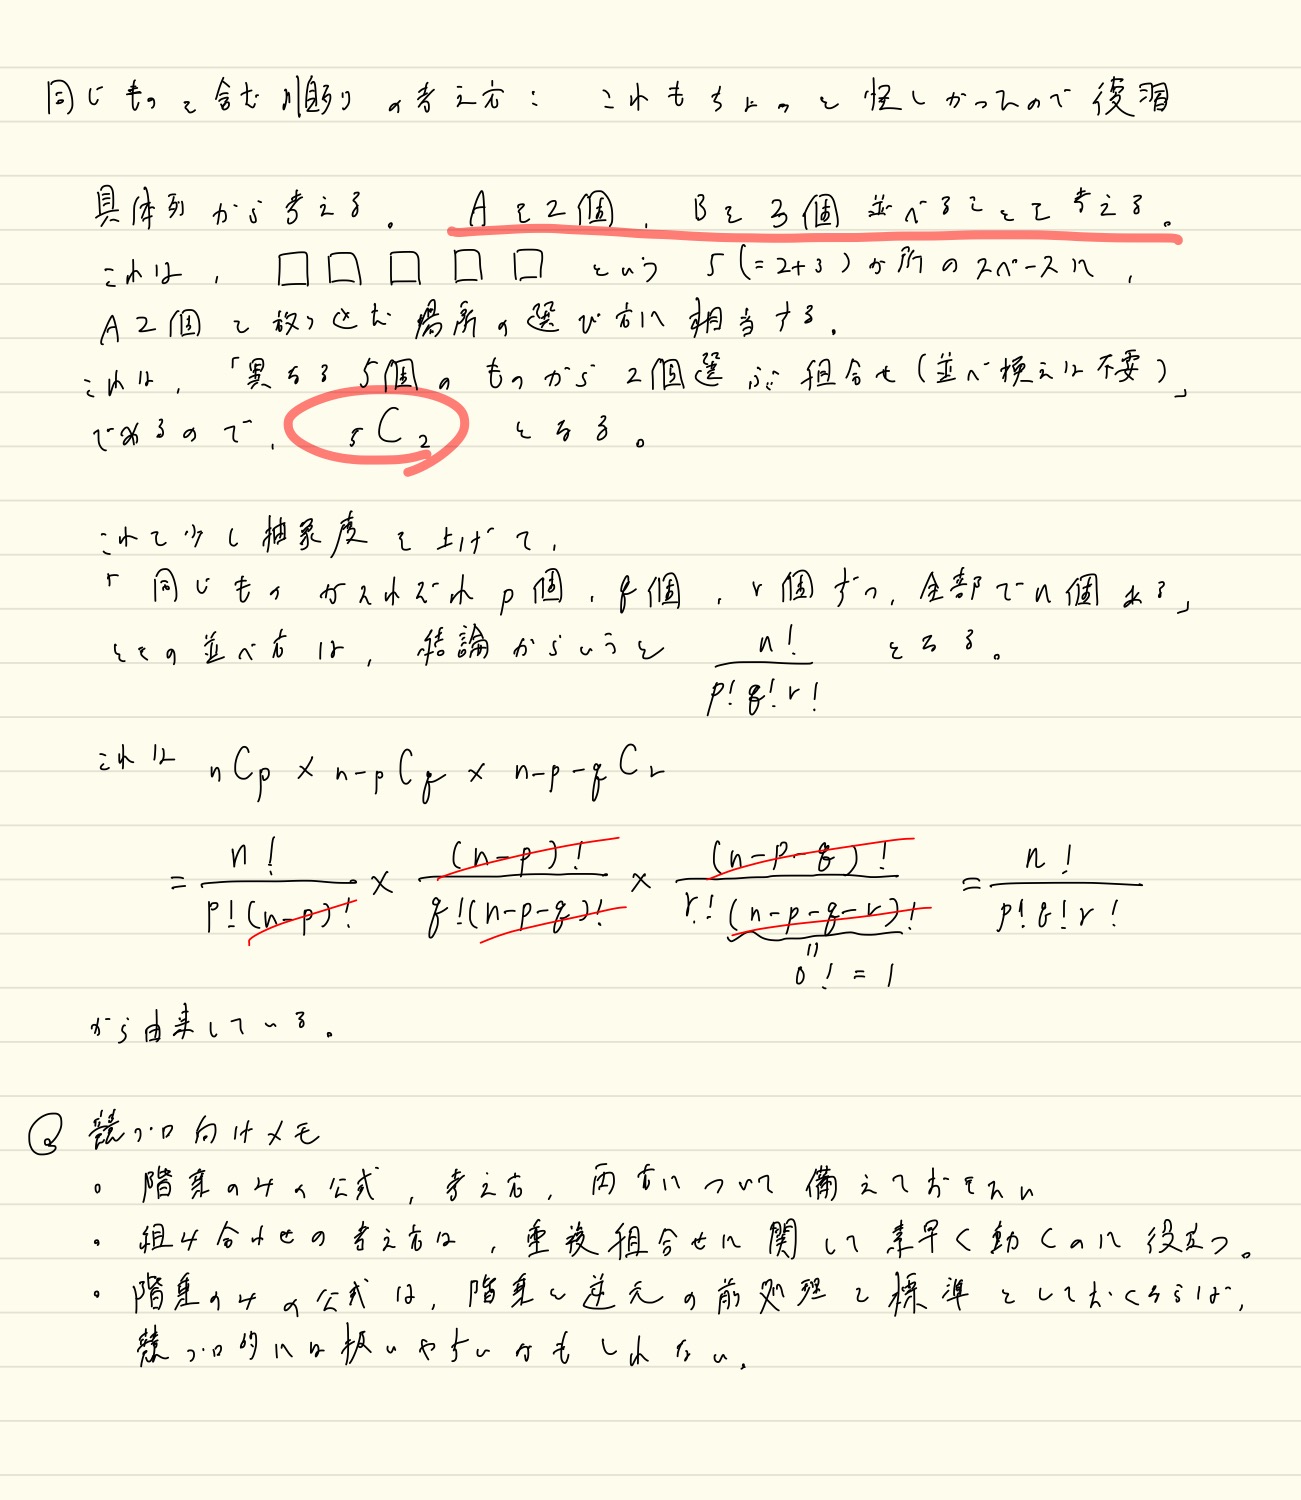 同じものを含む順列の考え方： これもちょっと怪しかったので復習
具体例から考える。 Aを2個、Bを3個並べることを考える。
これは、□□□□□ という 5(=2+3)か所のスペースに、
A2個を放り込む場所の選び方に相当する。
これは、「異なる5個のものから2個選ぶ組合せ(並べ換えは不要)」
であるので、 ₅C₂ となる。
これを少し抽象度を上げて、
「同じものがそれぞれp個、q個、r個ずつ、全部でn個ある」
ときの並べ方は、結論からいうと n!/(p!q!r!) となる。
これは nCp × n-pCq × n-p-qCr
= n!/(p!(n-p)!) × (n-p)!/(q!(n-p-q)!) × (n-p-q)!/(r!(n-p-q-r)!) = n!/(p!q!r!)
〃
0! = 1
から由来している。
競プロ向けメモ
・階乗のみの公式、考え方、両方について備えておきたい
・組み合わせの考え方は、重複組合せに関して素早く動くのに役立つ。
・階乗のみの公式は、階乗と逆元の前処理を標準としておくならば、
競プロ的には扱いやすいかもしれない。